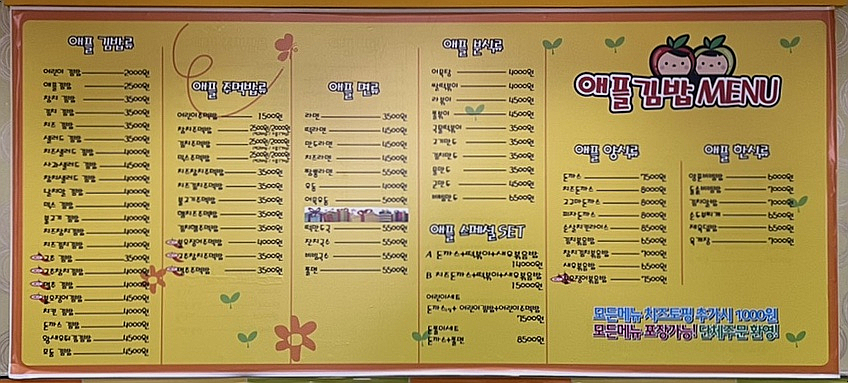 애플 김밥류
어린이 김밥 2000원
애플김밥 2500원
참치 김밥 3500원
김치 김밥 3500원
치즈 김밥 3500원
샐러드 김밥 3500원
치즈샐러드 김밥 4000원
사과샐러드 김밥 4500원
참치샐러드 김밥 4000원
날치알 김밥 4000원
맥스 김밥 4000원
불고기 김밥 4000원
치즈참치김밥 4000원
치즈김치김밥 4000원
고추 김밥 3500원
고추참치김밥 4000원
김밥 4000원
오징어김밥 4500원
치킨 김밥 4000원
돈까스 김밥 4000원
왕새우튀김김밥 4500원
모듬 김밥 4500원
애플 주먹밥류
어린이주먹밥 1500원
참치주먹밥 2500원/2000원
김치주먹밥 2500원/2000원
맥스주먹밥 2500원/2000원
치즈참치주먹밥 3500원
치즈김치주먹밥 3500원
불고기주먹밥 3500원
햄치즈주먹밥 3500원
김치햄주먹밥 3500원
오징어주먹밥 4000원
고추참치주먹밥 3500원
주먹밥 3500원
애플 면류
라면 3500원
떡라면 4500원
만두라면 4500원
치즈라면 4500원
짬뽕라면 5500원
우동 4000원
어묵우동 5000원
떡만두국 5500원
잔치국수 5500원
비빔국수 5500원
쫄면 5500원
애플 분식류
어묵탕 4000원
쌀떡볶이 4000원
라볶이 4500원
쫄볶이 4500원
국물떡볶이 3500원
고기만두 3500원
김치만두 3500원
물만두 3500원
군만두 4500원
비빔만두 6500원
애플 스페셜 SET
A 돈까스+떡볶이+새우볶음밥
14000원
B 치즈돈까스+떡볶이+새우볶음밥
15000원
어린이세트
돈까스 + 어린이김밥+어린이주먹밥
7500원
돈쫄이세트
돈까스+쫄면 8500원
애플김밥 MENU
애플 양식류
돈까스 7500원
치즈돈까스 8000원
고구마돈까스 8000원
피자돈까스 8000원
손살치킨까스 8500원
김치볶음밥 6500원
참치김치볶음밥 7000원
새우볶음밥 6500원
오징어볶음밥 7500원
애플 한식류
열무비빔밥 6000원
돌솥비빔밥 7000원
김치알밥 7000원
순두부찌개 6500원
제육덮밥 6500원
육개장 7000원
모든메뉴 치즈토핑 추가시 1000원
모든메뉴 포장가능! 단체주문 환영!